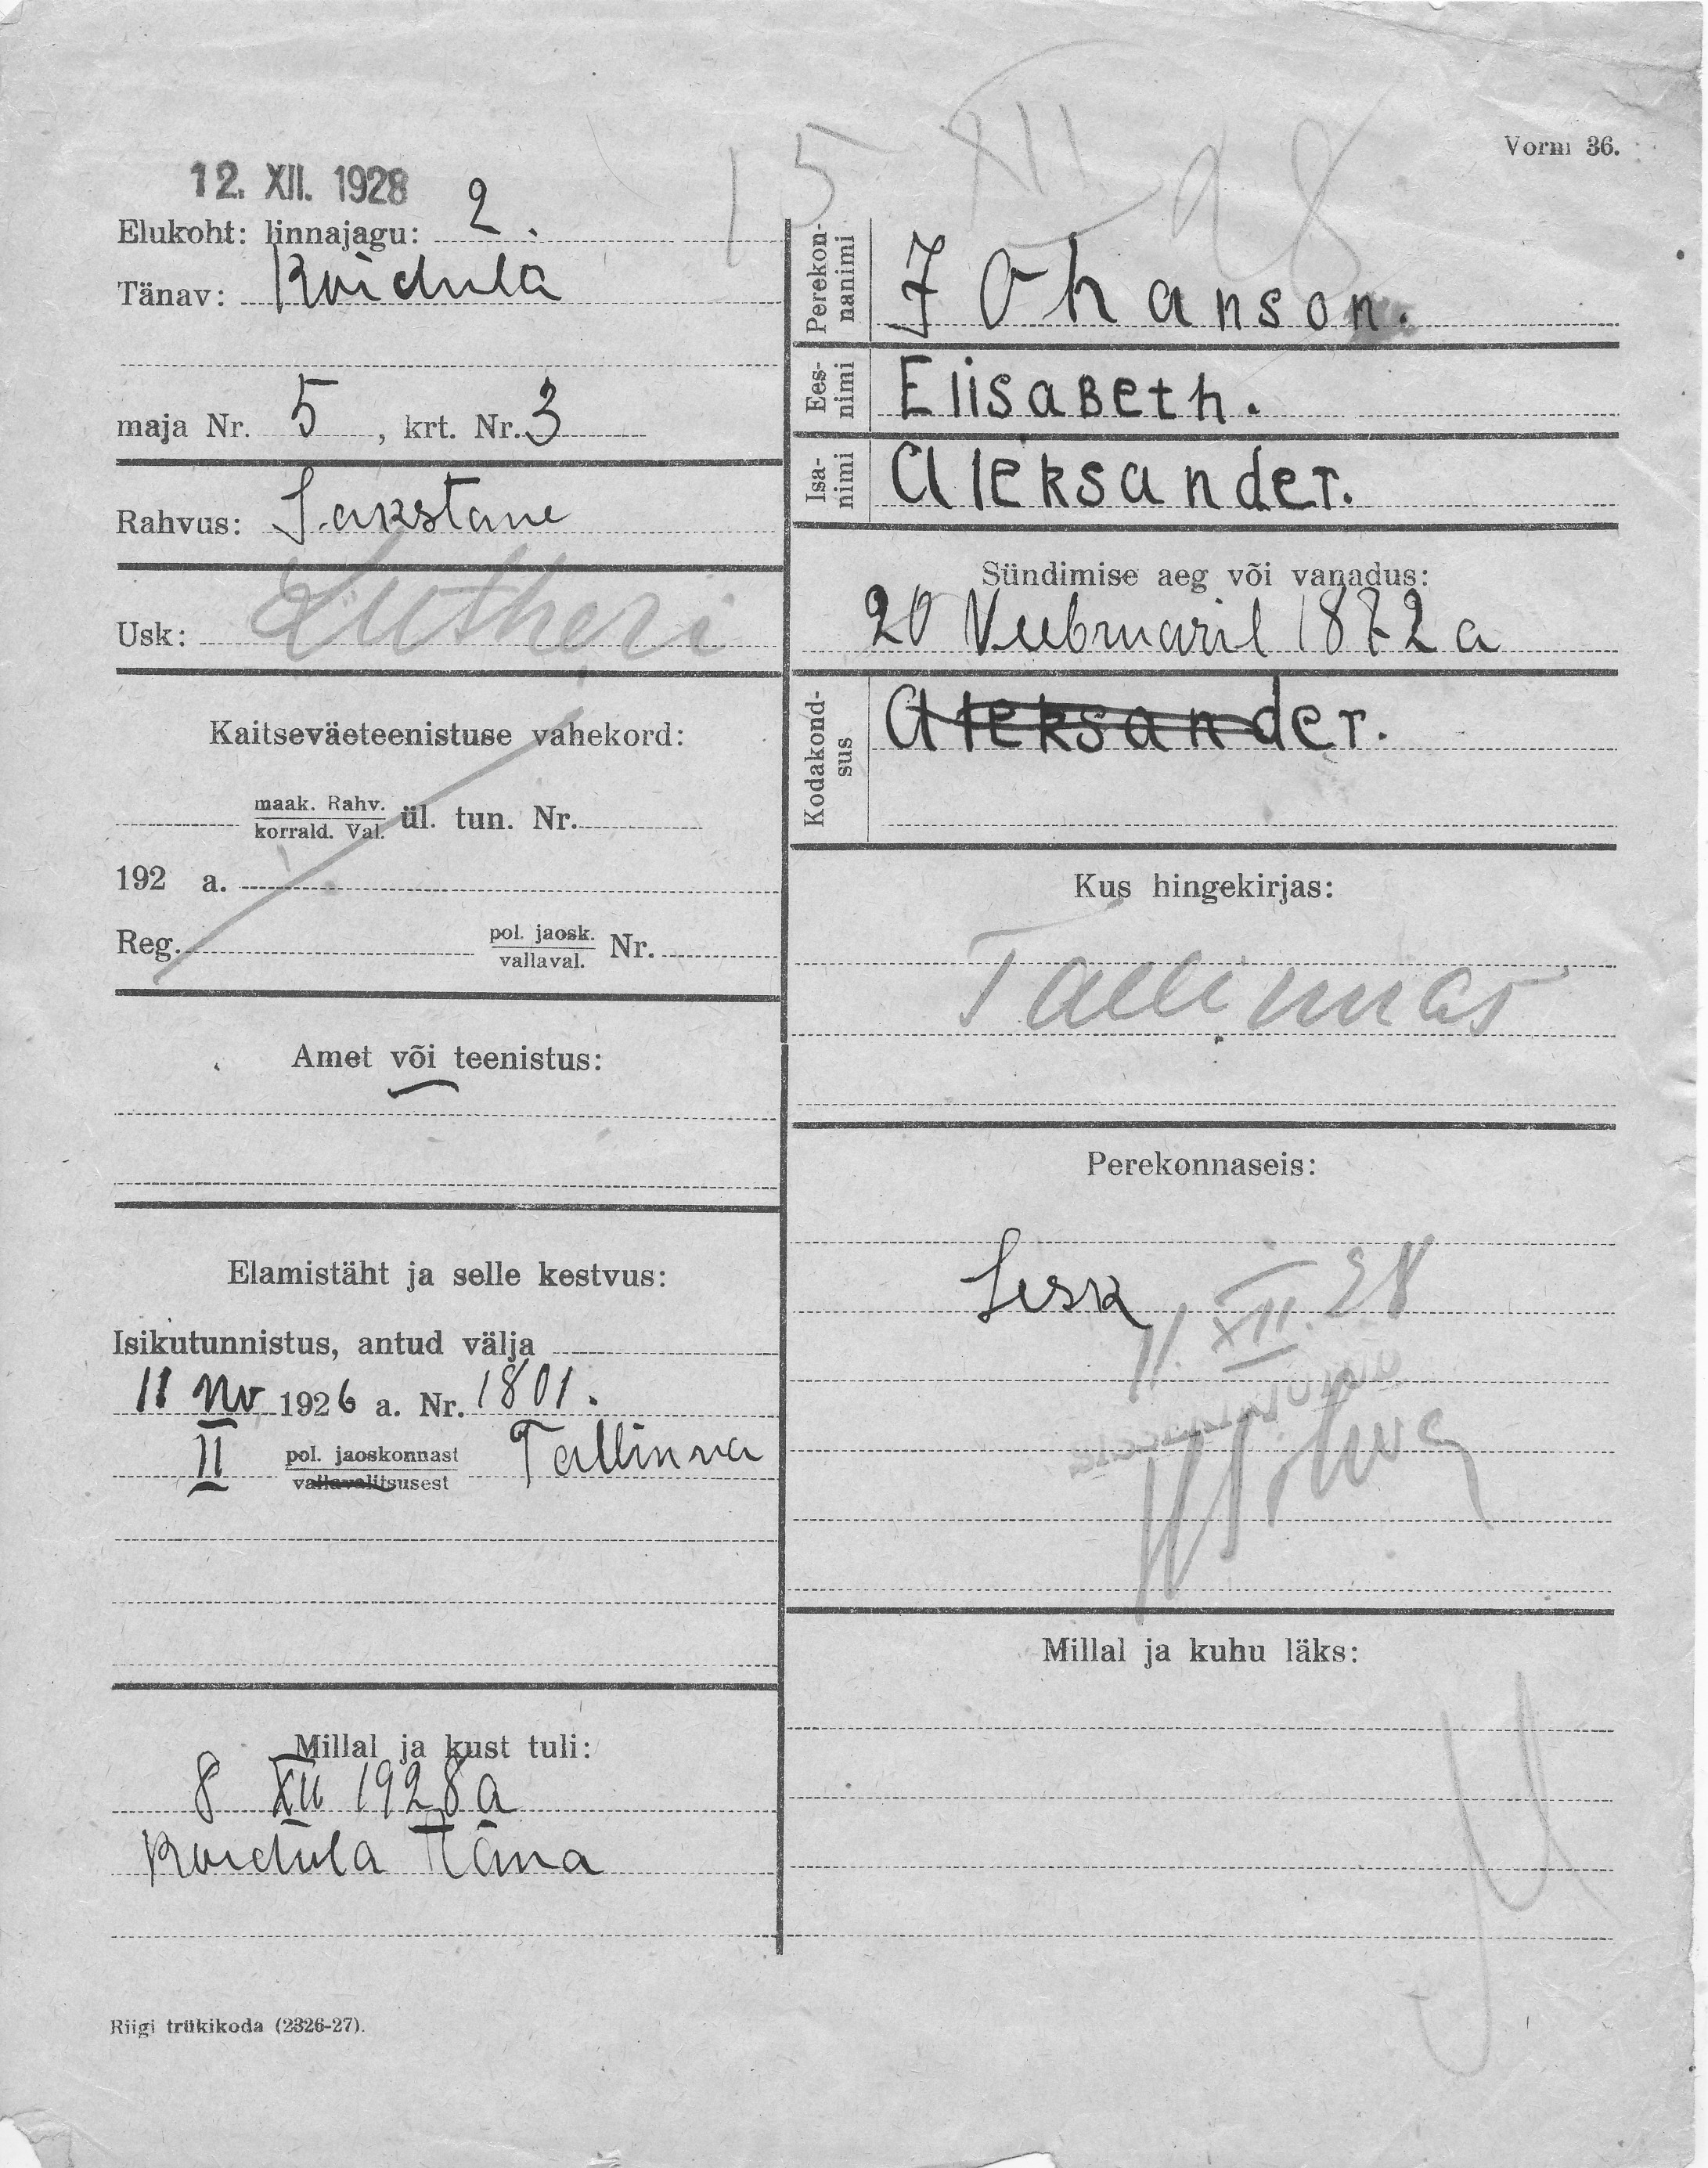 Vorm 36.
15 XII 28
12. XII. 1928
Elukoht: linnajagu: 2.
Tänav: Koidula
maja Nr. 5, krt. Nr. 3
Rahvus: Sakstane
Usk: Lutheri
Kaitseväeteenistuse vahekord:
maak. Rahv.
korrald. Val. ül. tun. Nr.
192 a.
Reg. pol. jaosk.
vallaval. Nr.
Amet või teenistus:
Elamistäht ja selle kestvus:
Isikutunnistus, antud välja
11 Nov 1926 a. Nr. 1801.
II pol. jaoskonnast Tallinna
vallavalitsusest
Millal ja kust tuli:
8 XII 1928 a
Koidula Täna
Riigi trükikoda (2326-27).
Perekon-
nanimi Johanson.
Ees-
nimi Elisabeth.
Isa-
nimi Aleksander.
Sündimise aeg või vanadus:
20 Veebruaril 1872 a
Kodakond-
sus Aleksander.
Kus hingekirjas:
Tallinnas
Perekonnaseis:
Lesk
11. XII. 28
Millal ja kuhu läks: